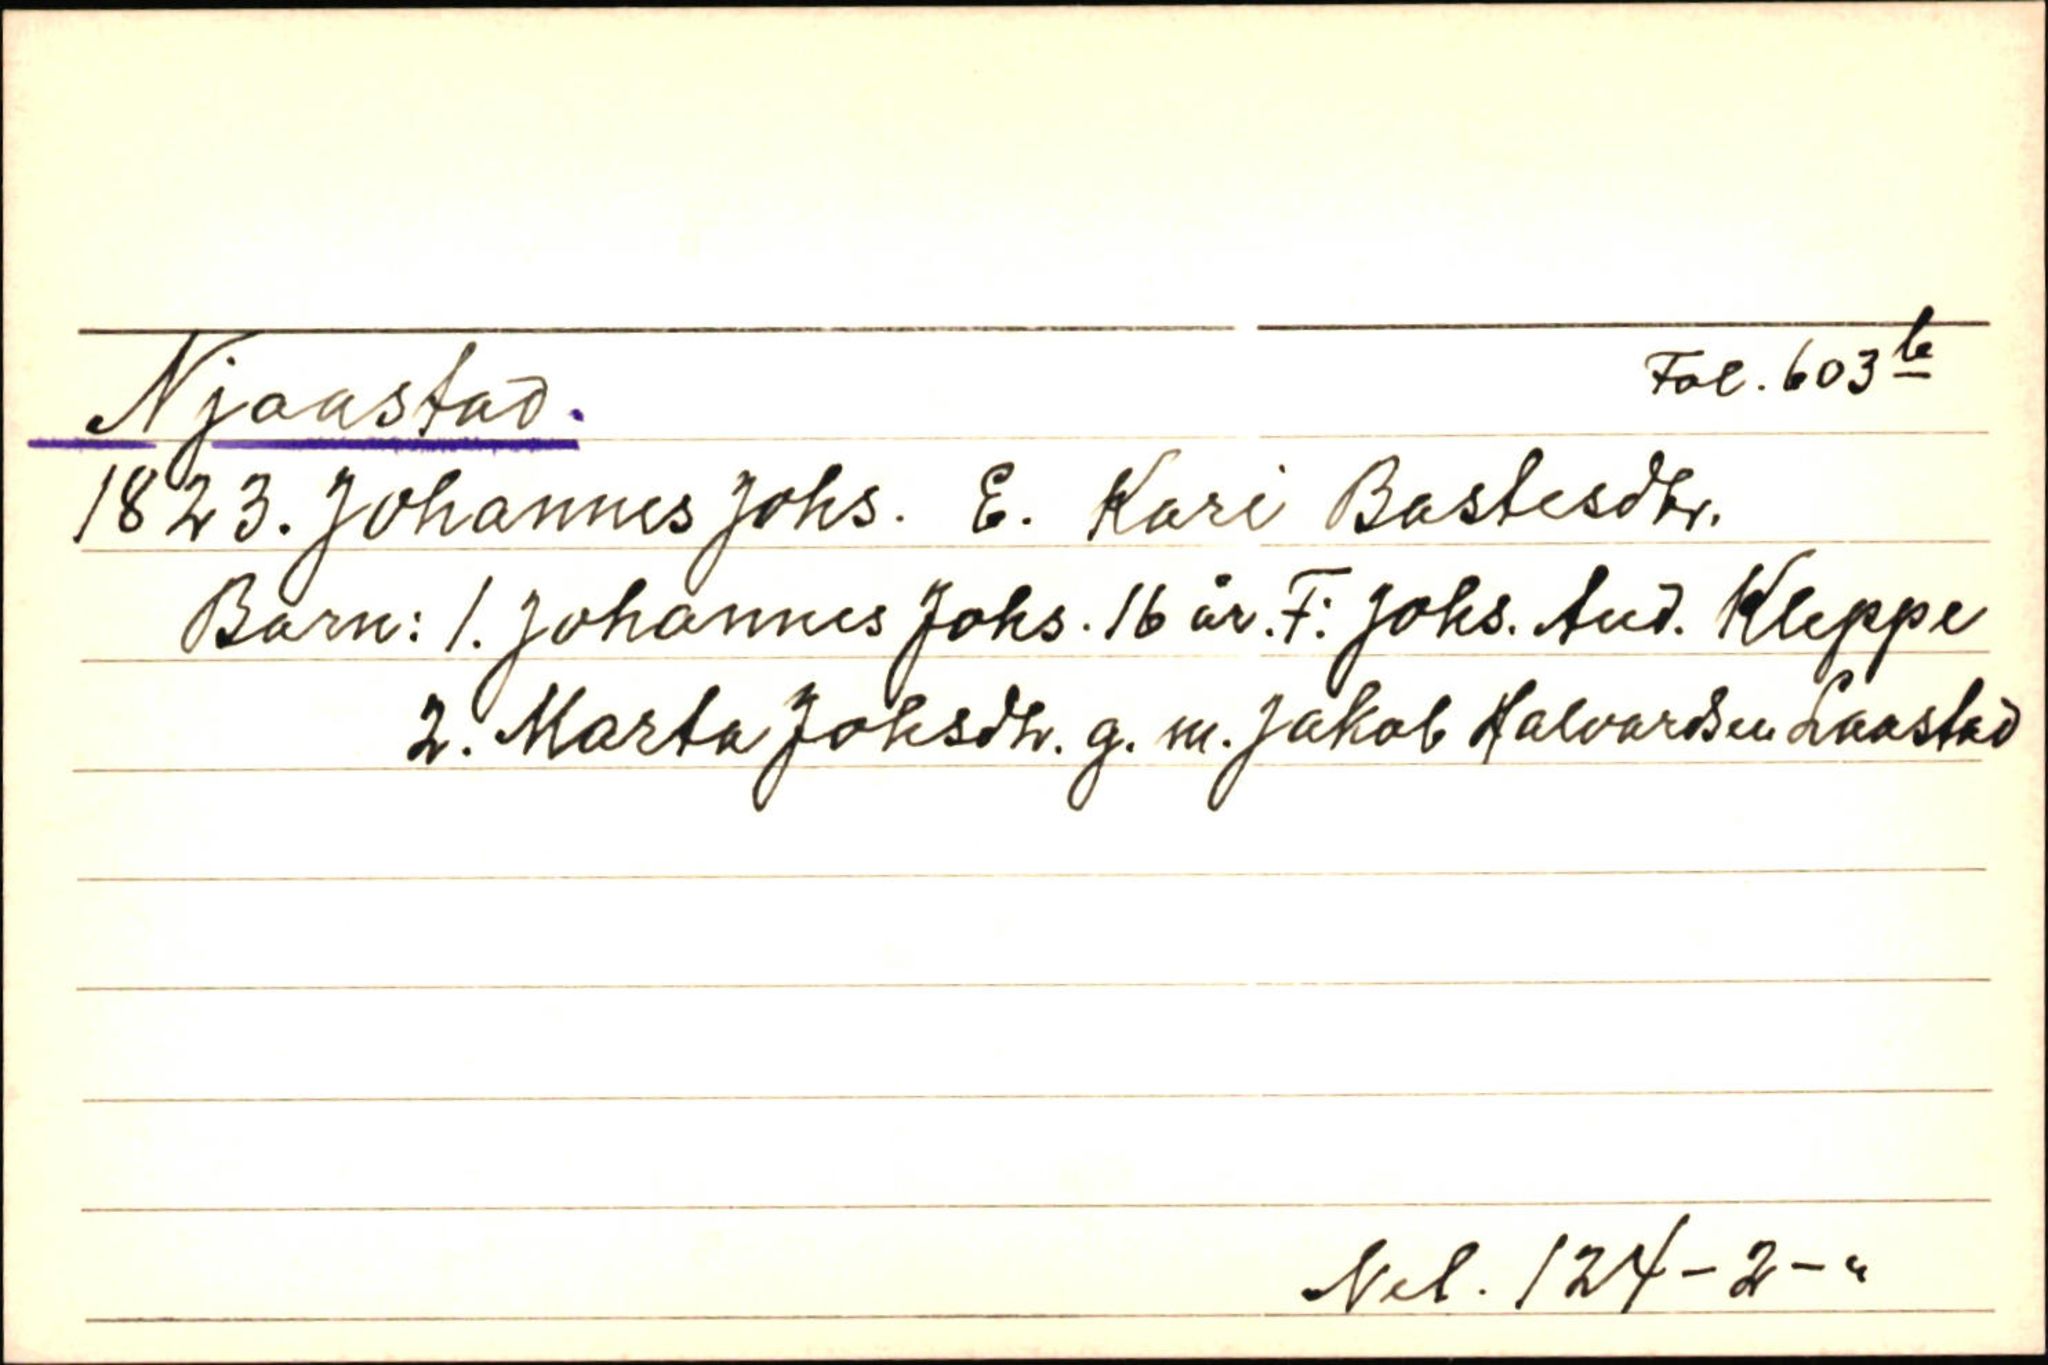 Njaastad. Fol. 603 b
1823. Johannes Johs. E. Kari Bastesdtr.
Barn: 1. Johannes Johs. 16 år. F: Johs. And. Kleppe
2. Marta Johsdtr. g. m. Jakob Halvardsen Laastad
Nel. 124 - 2 - "